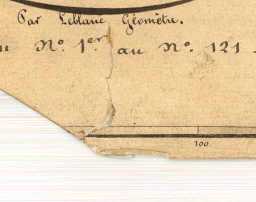 Par Leblanc Géomètre.
Nº. 1er au Nº. 121
100